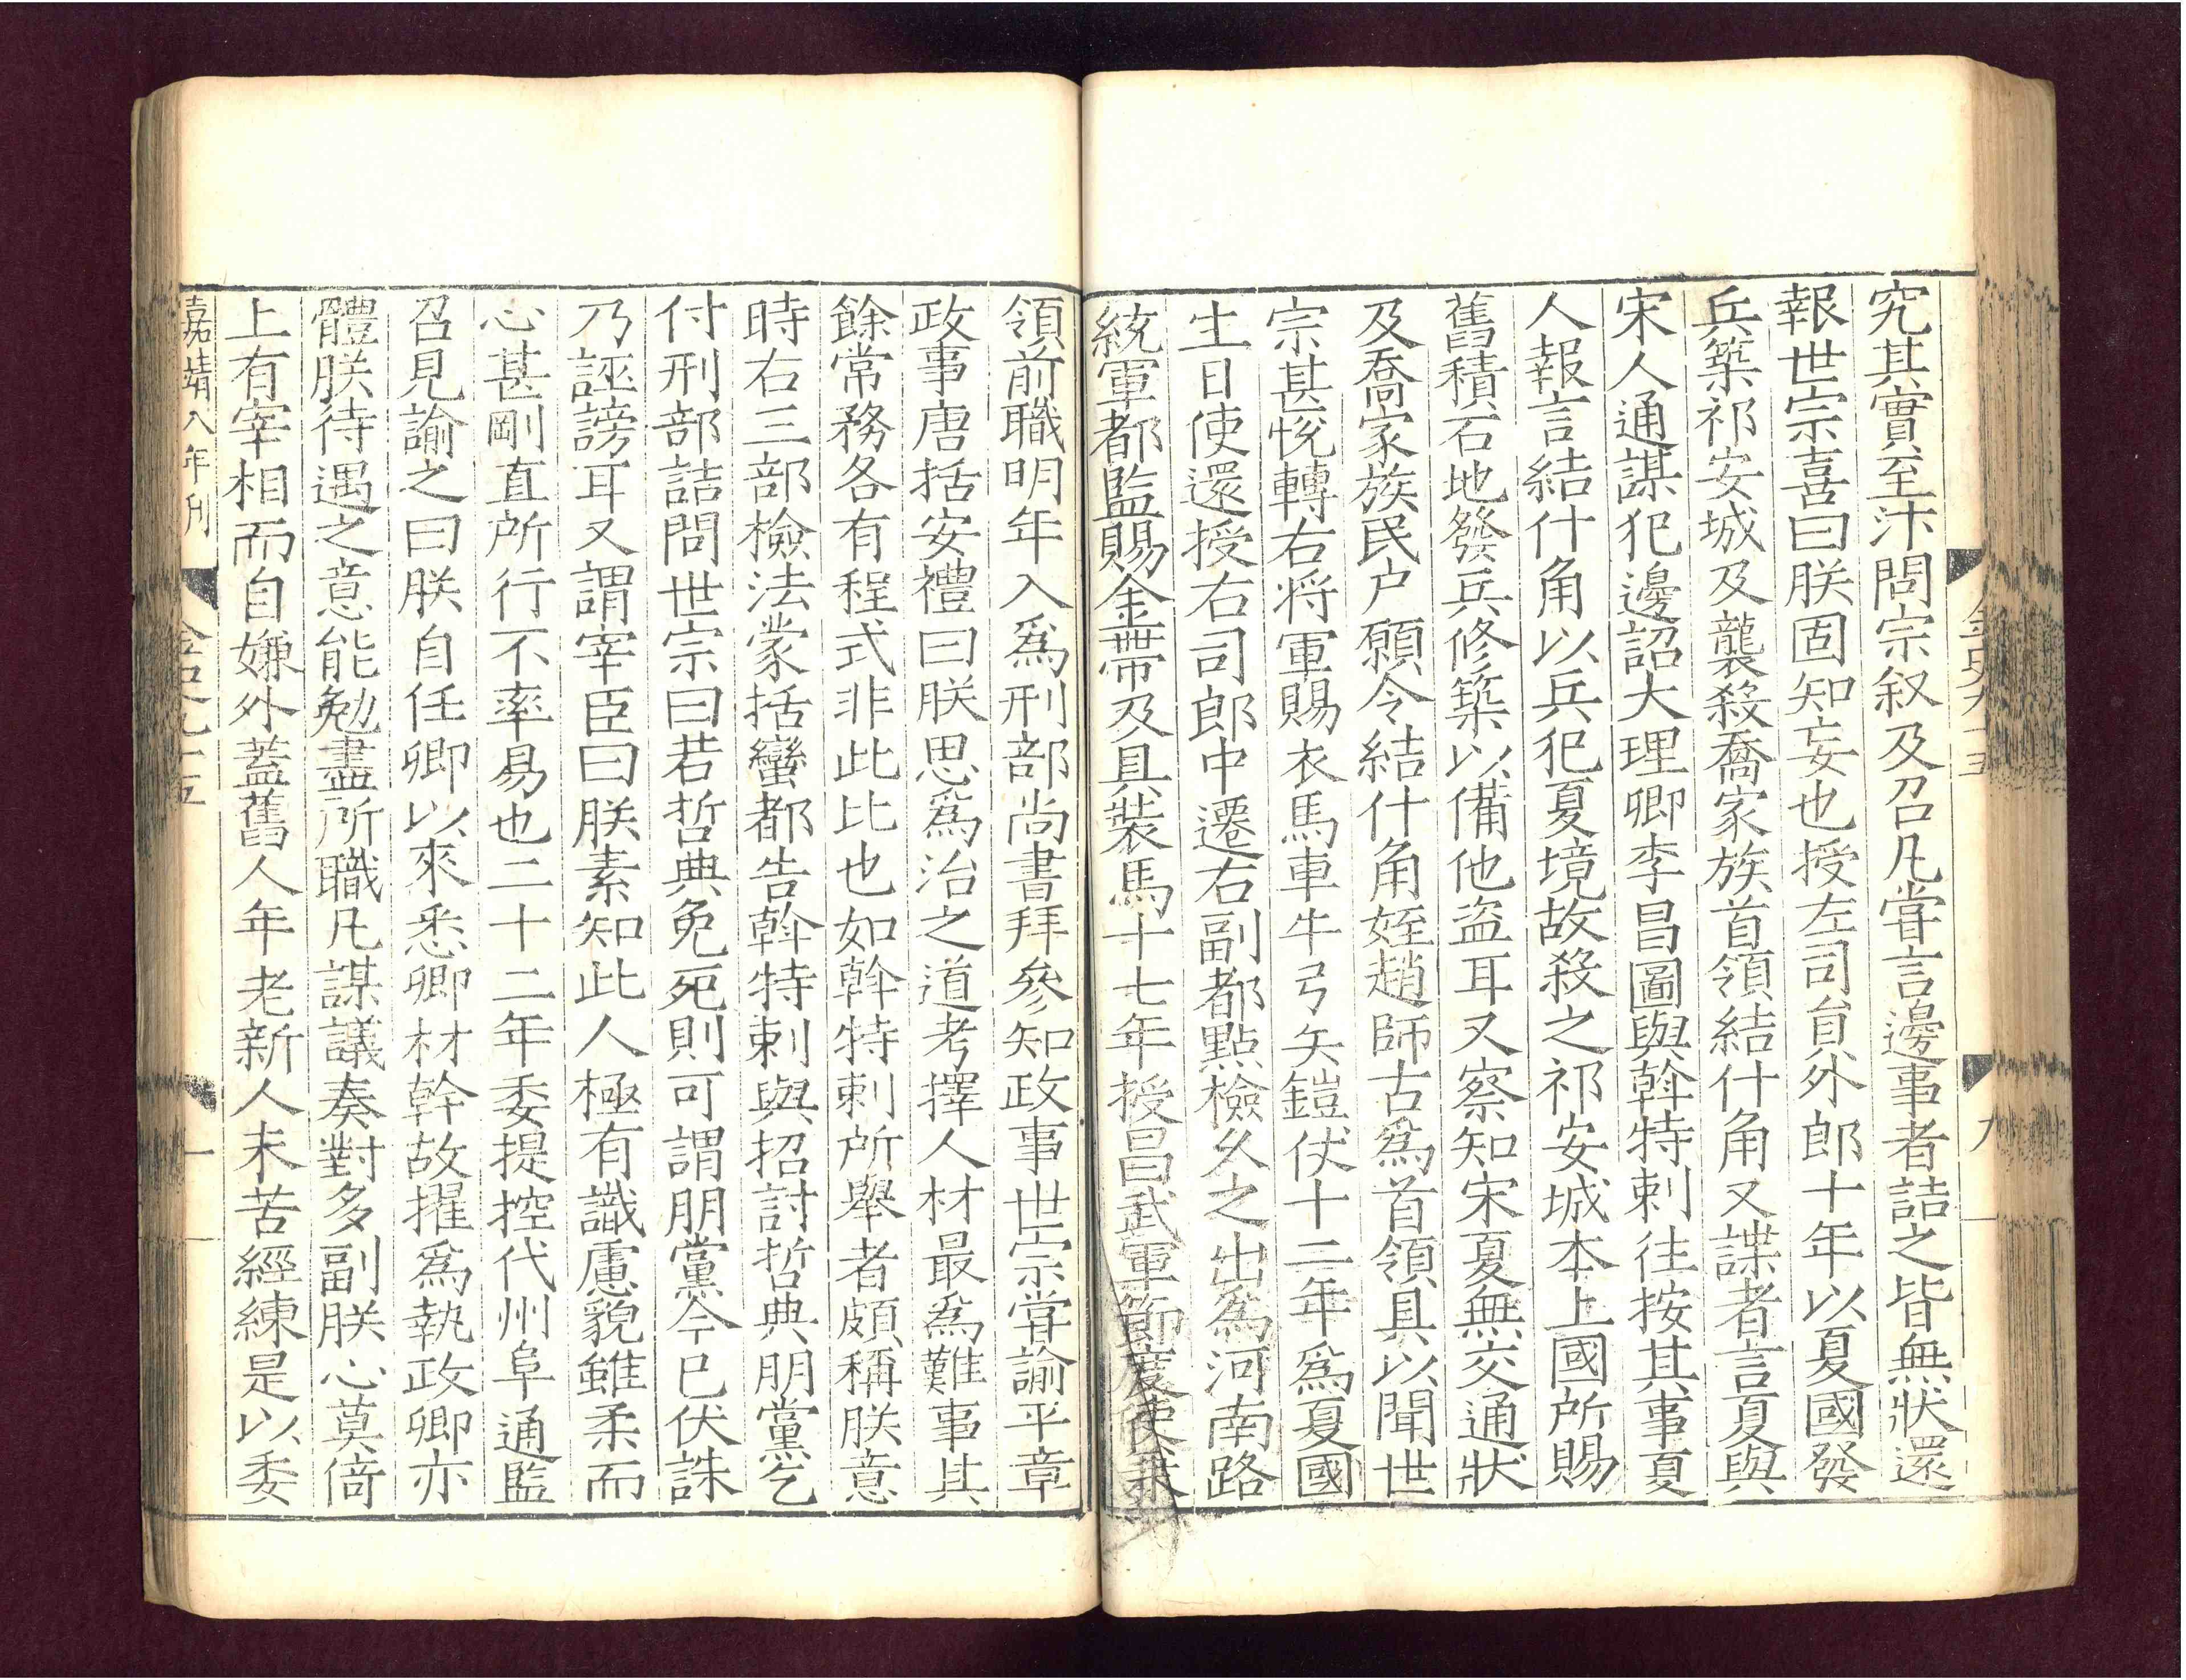 究其實至汴問宗叙及召凡嘗言邊事者詰之皆無狀還
報世宗喜曰朕固知妄也授左司員外郎十年以夏國發
兵築祁安城及襲殺喬家族首領結什角又諜者言夏與
宋人通謀犯邊詔大理卿李昌圖與斡特剌往按其事夏
人報言結什角以兵犯夏境故殺之祁安城本上國所賜
舊積石地發兵修築以備他盜耳又察知宋夏無交通狀
及喬家族民户願令結什角姪趙師古爲首領具以聞世
宗甚悅轉右將軍賜衣馬車牛弓矢鎧伏十二年爲夏國
生日使還授右司郎中遷右副都點檢久之出爲河南路
統軍都監賜金帶及具裝馬十七年授昌武軍節度使
金史九十五
九
領前職明年入爲刑部尚書拜參知政事世宗嘗諭平章
政事唐括安禮曰朕思爲治之道考擇人材最爲難事其
餘常務各有程式非此比也如斡特剌所舉者頗稱朕意
時右三部檢法蒙括蠻都告斡特剌與招討哲典朋黨乞
付刑部詰問世宗曰若哲典免死則可謂朋黨今巳伏誅
乃誣謗耳又謂宰臣曰朕素知此人極有識慮貌雖柔而
心甚剛直所行不率易也二十二年委提控代州阜通監
召見諭之曰朕自任卿以來悉卿材幹故擢爲執政卿亦
體朕待遇之意能勉盡所職凡謀議奏對多副朕心莫倚
上有宰相而自嫌外蓋舊人年老新人未苦經練是以委
嘉靖八年刊
金史九十五